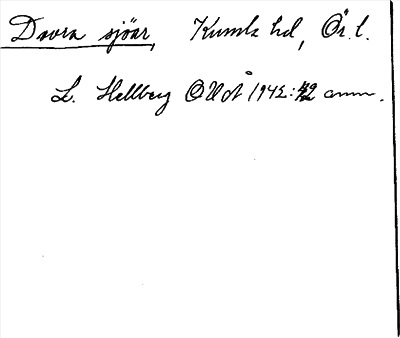 Dovra sjöar, Kumla hd, Ör. l.
L. Hellberg OUoÅ 1942:42 anm.